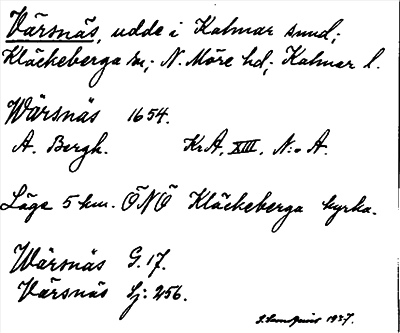 Värsnäs, udde i Kalmar sund;
Kläckeberga sn; N. Möre hd; Kalmar l.
Wärsnäs 1654.
A. Bergh. Kr.A, XIII, N:o A.
Läge 5 km. ÖNÖ Kläckeberga kyrka.
Wärsnäs G. 17.
Värsnäs Lj: 256.
1927.